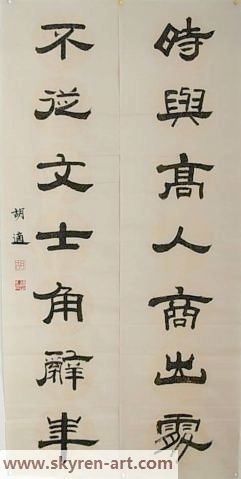 時與髙人商出處
不從文士角辭
胡適
www.skyren-art.com